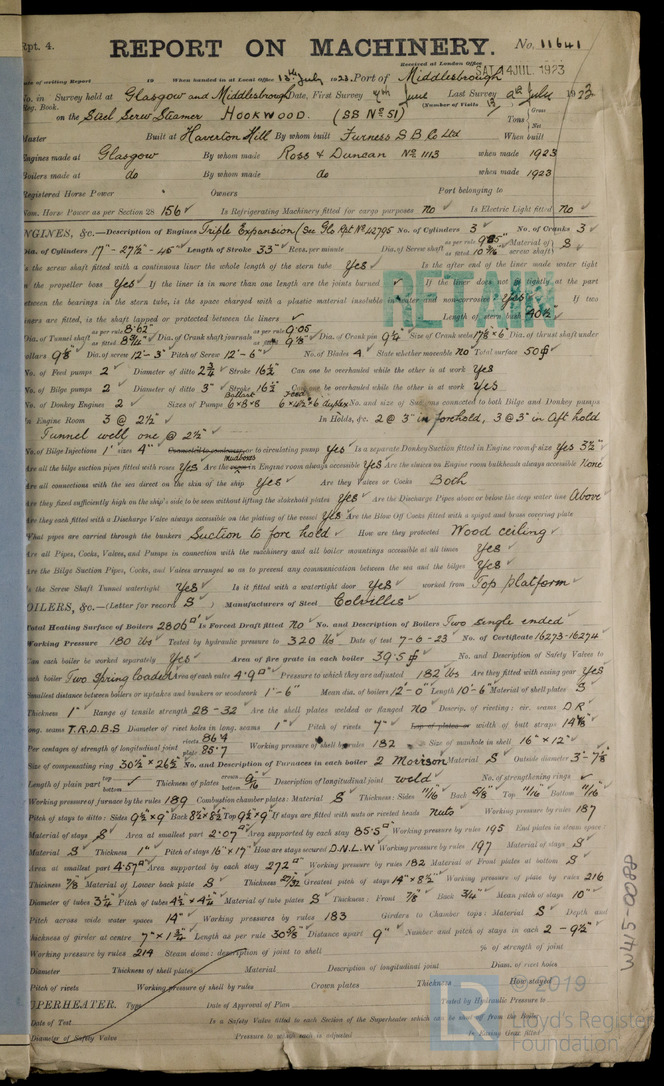 Rpt. 4.
REPORT ON MACHINERY. No. 11641
Received at London Office
SAT. 14 JUL. 1923
Date of writing Report 19 When handed in at Local Office 13th July 1923. Port of Middlesbrough
No. in Survey held at Glasgow and Middlesbrough Date, First Survey 4th June Last Survey 9th July 1923
Reg. Book. (Number of Visits 13)
on the Steel Screw Steamer HOOKWOOD. (SS No 51) Tons { Gross Net
Master Built at Haverton Hill By whom built Furness S B Co Ltd When built
Engines made at Glasgow By whom made Ross & Duncan No 1113 when made 1923
Boilers made at do By whom made do when made 1923
Registered Horse Power Owners Port belonging to
Nom. Horse Power as per Section 28 156 Is Refrigerating Machinery fitted for cargo purposes No Is Electric Light fitted No
ENGINES, &c.—Description of Engines Triple Expansion (See Gls Rpt No 42795 No. of Cylinders 3 No. of Cranks 3
Dia. of Cylinders 17" - 27½ - 45" Length of Stroke 33" Revs. per minute Dia. of Screw shaft as per rule 9.85" as fitted 10 3/16 Material of screw shaft S
Is the screw shaft fitted with a continuous liner the whole length of the stern tube Yes Is the after end of the liner made water tight
in the propeller boss Yes If the liner is in more than one length are the joints burned If the liner does not fit tightly at the part
between the bearings in the stern tube, is the space charged with a plastic material insoluble in water and non-corrosive Yes If two
liners are fitted, is the shaft lapped or protected between the liners Length of stern bush 40½
RETAIN
Dia. of Tunnel shaft as per rule 8.62" as fitted 8 9/16" Dia. of Crank shaft journals as per rule 9.05 as fitted 9⅛" Dia. of Crank pin 9¼" Size of Crank webs 17⅛ x 6 Dia. of thrust shaft under
collars 9⅛ Dia. of screw 12'-3" Pitch of Screw 12'-6" No. of Blades 4 State whether moveable No Total surface 50
No. of Feed pumps 2 Diameter of ditto 2¾ Stroke 16½ Can one be overhauled while the other is at work Yes
No. of Bilge pumps 2 Diameter of ditto 3" Stroke 16½ Can one be overhauled while the other is at work Yes
No. of Donkey Engines 2 Sizes of Pumps Ballast 6 x 8 x 8 Feed 6 x 4½ x 6 duplex No. and size of Suctions connected to both Bilge and Donkey pumps
In Engine Room 3 @ 2½" In Holds, &c. 2 @ 3" in forehold, 3 @ 3" in Aft hold
Tunnel well one @ 2½"
No. of Bilge Injections 1 sizes 4" to circulating pump Yes Is a separate Donkey Suction fitted in Engine room & size Yes 3½"
Are all the bilge suction pipes fitted with roses Yes Are the mudboxes in Engine room always accessible Yes Are the sluices on Engine room bulkheads always accessible None
Are all connections with the sea direct on the skin of the ship Yes Are they Valves or Cocks Both
Are they fixed sufficiently high on the ship's side to be seen without lifting the stokehold plates Yes Are the Discharge Pipes above or below the deep water line Above
Are they each fitted with a Discharge Valve always accessible on the plating of the vessel Yes Are the Blow Off Cocks fitted with a spigot and brass covering plate
What pipes are carried through the bunkers Suction to fore hold How are they protected Wood ceiling
Are all Pipes, Cocks, Valves, and Pumps in connection with the machinery and all boiler mountings accessible at all times Yes
Are the Bilge Suction Pipes, Cocks, and Valves arranged so as to prevent any communication between the sea and the bilges Yes
Is the Screw Shaft Tunnel watertight Yes Is it fitted with a watertight door Yes worked from Top platform
BOILERS, &c.—(Letter for record S) Manufacturers of Steel Colvilles
Total Heating Surface of Boilers 2806 Is Forced Draft fitted No No. and Description of Boilers Two single ended
Working Pressure 180 lbs Tested by hydraulic pressure to 320 lbs Date of test 7-6-23 No. of Certificate 16273-16274
Can each boiler be worked separately Yes Area of fire grate in each boiler 39.5 No. and Description of Safety Valves to
each boiler Two Spring loaded Area of each valve 4.9 Pressure to which they are adjusted 182 lbs Are they fitted with easing gear Yes
Smallest distance between boilers or uptakes and bunkers or woodwork 1'-6" Mean dia. of boilers 12'-0" Length 10'-6" Material of shell plates S
Thickness 1" Range of tensile strength 28-32 Are the shell plates welded or flanged No Descrip. of riveting: cir. seams D R
long. seams T.R.D.B.S Diameter of rivet holes in long. seams 1" Pitch of rivets 7" width of butt straps 14⅞
Per centages of strength of longitudinal joint rivets 86.4 plate 85.7 Working pressure of shell by rules 182 Size of manhole in shell 16" x 12"
Size of compensating ring 30½ x 26½ No. and Description of Furnaces in each boiler 2 Morrison Material S Outside diameter 3'-7⅛
Length of plain part top bottom Thickness of plates crown bottom 9/16 Description of longitudinal joint weld No. of strengthening rings
Working pressure of furnace by the rules 189 Combustion chamber plates: Material S Thickness: Sides 11/16 Back 5/8 Top 11/16 Bottom 11/16
Pitch of stays to ditto: Sides 9½ x 9" Back 8½ x 8½ Top 9½ x 9" If stays are fitted with nuts or riveted heads nuts Working pressure by rules 187
Material of stays S Area at smallest part 2.07 Area supported by each stay 85.5 Working pressure by rules 195 End plates in steam space
Material S Thickness 1" Pitch of stays 16" x 17" How are stays secured D.N.L.W Working pressure by rules 197 Material of stays S
Area at smallest part 4.57 Area supported by each stay 272 Working pressure by rules 182 Material of Front plates at bottom S
Thickness 7/8 Material of Lower back plate S Thickness 27/32 Greatest pitch of stays 14" x 8½" Working pressure of plate by rules 216
Diameter of tubes 3¼ Pitch of tubes 4½ x 4¼ Material of tube plates S Thickness: Front 7/8 Back 3/4 Mean pitch of stays 10"
Pitch across wide water spaces 14" Working pressures by rules 183 Girders to Chamber tops: Material S Depth and
thickness of girder at centre 7" x 1¾ Length as per rule 30 Distance apart 9" Number and pitch of stays in each 2 - 9½"
Working pressure by rules 214 Steam dome: description of joint to shell % of strength of joint
Diameter Thickness of shell plates Material Description of longitudinal joint Diam. of rivet holes
Pitch of rivets Working pressure of shell by rules Crown plates Thickness How stayed
SUPERHEATER. Type Date of Approval of Plan Tested by Hydraulic Pressure to
Date of Test Is a Safety Valve fitted to each Section of the Superheater which can be shut off from the Boiler
Diameter of Safety Valve Pressure to which each is adjusted Is Easing Gear fitted
W415-0088
© 2019
LR
Lloyd's Register
Foundation